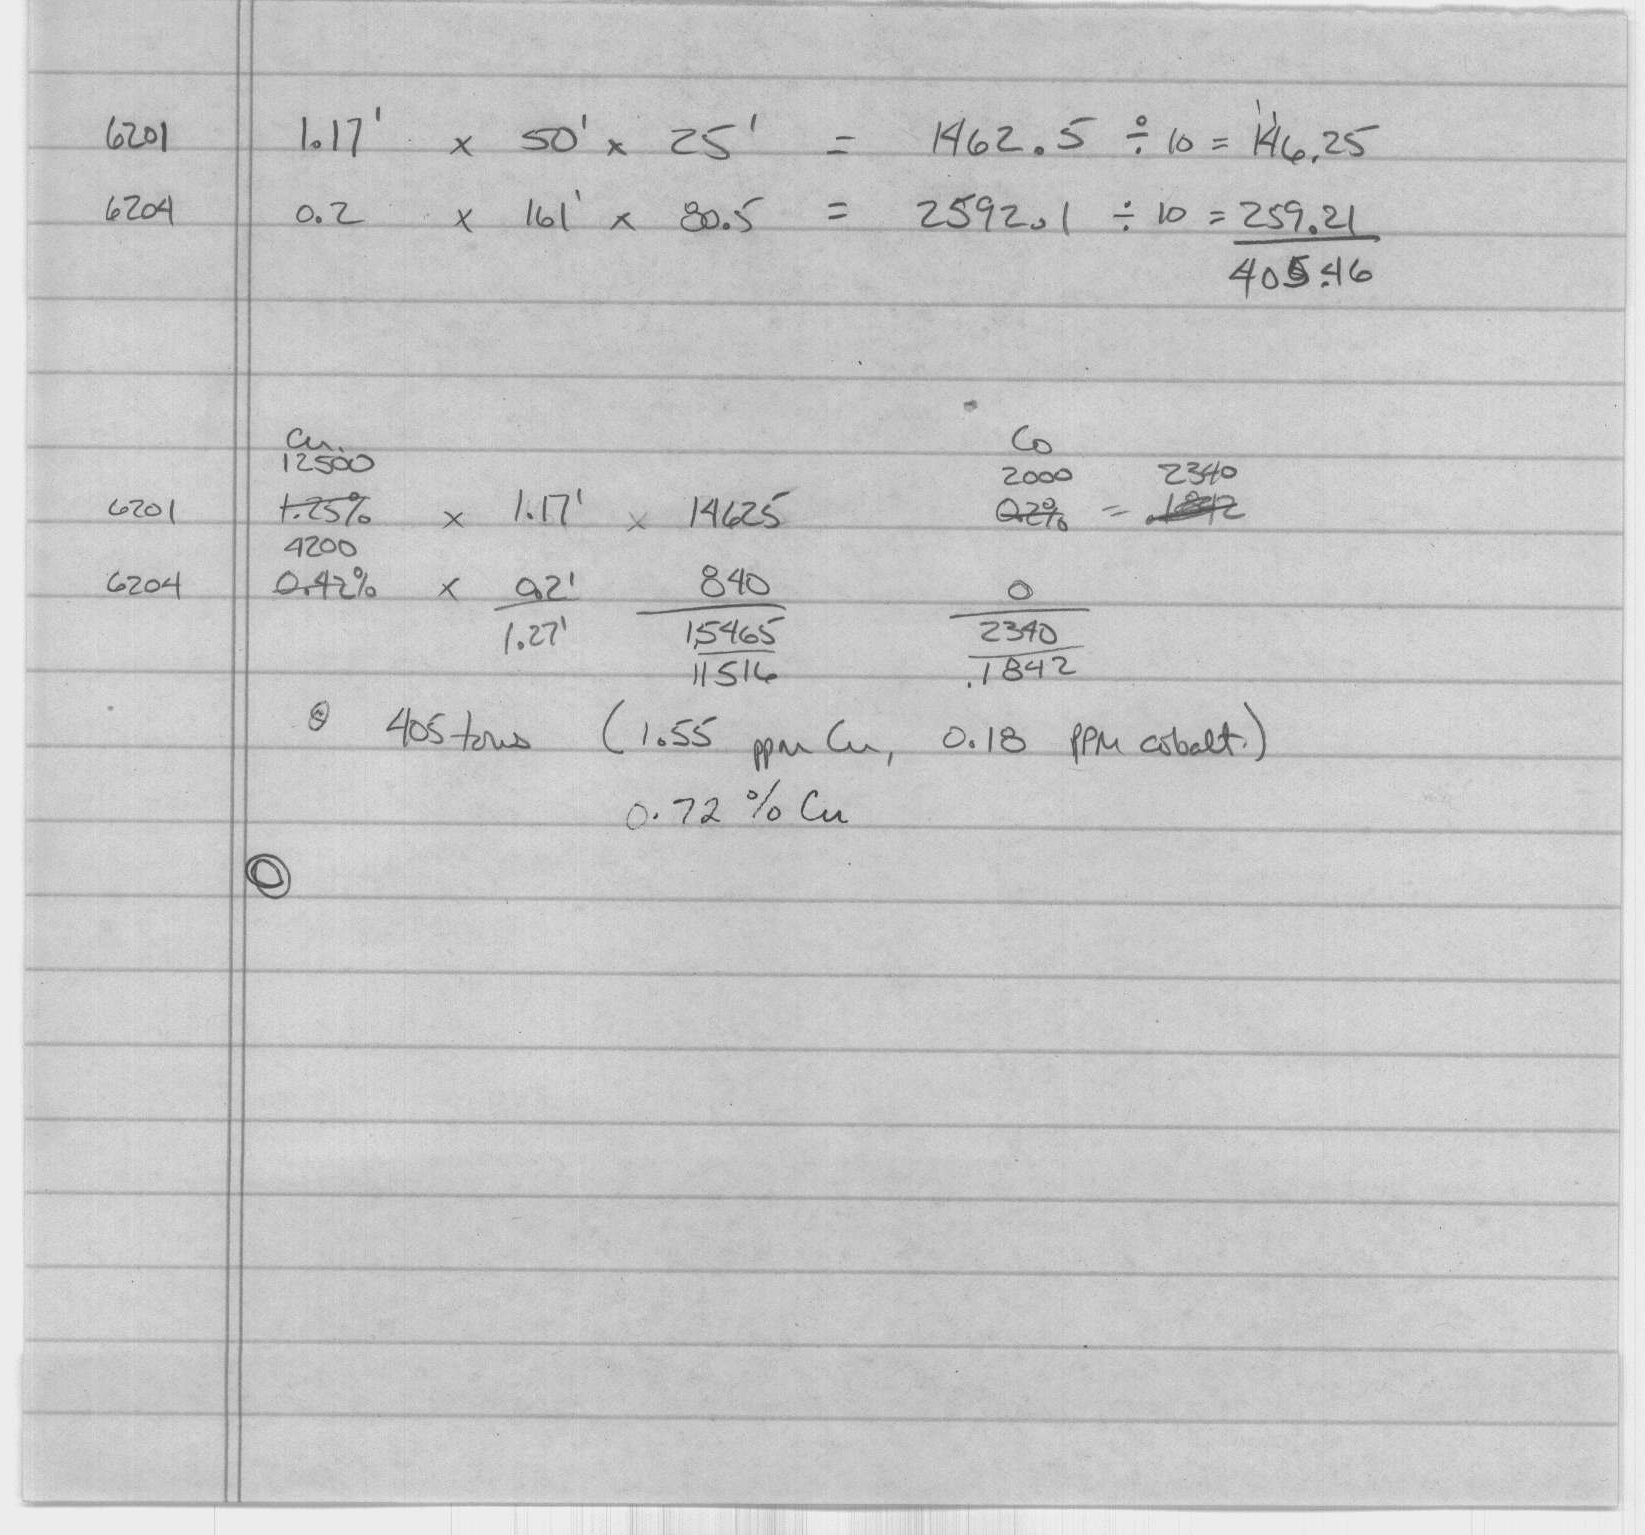 6201 1.17' x 50' x 25' = 1462.5 ÷ 10 = 146.25
6204 0.2 x 161' x 80.5 = 2592.1 ÷ 10 = 259.21
405.46
Cu. Co
12500 2000 2340
6201 1.25% x 1.17' x 14625 0.2% = .1842
4200
6204 0.42% x 0.2' 840 0
1.27' 15465 2340
11516 .1842
405 tons (1.55 ppm Cu, 0.18 PPM cobalt.)
0.72 % Cu